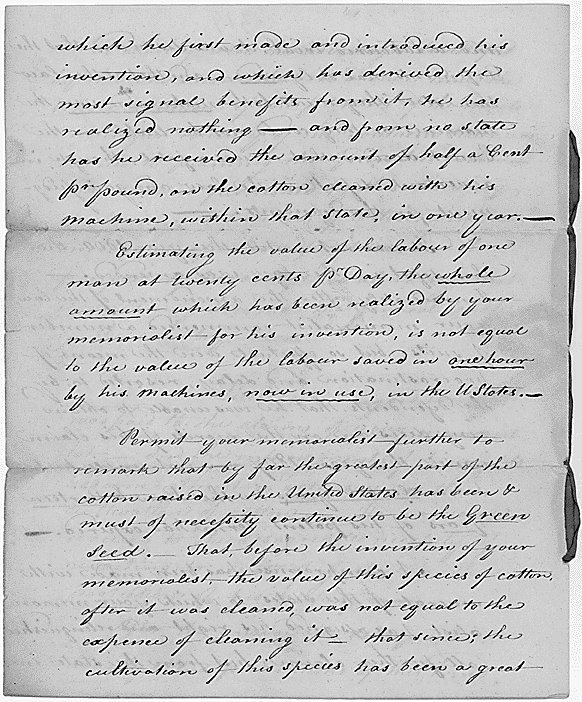 which he first made and introduced his
invention, and which has derived the
most signal benefits from it, he has
realized nothing — and from no state
has he received the amount of half a Cent
pr pound, on the cotton cleaned with his
machine, within that state, in one year. —
Estimating the value of the labour of one
man at twenty cents pr Day, the whole
amount which has been realized by your
memorialist for his invention, is not equal
to the value of the labour saved in one hour
by his machines, now in use, in the U States. —
Permit your memorialist further to
remark that by far the greatest part of the
cotton raised in the United States has been &
must of necessity continue to be the Green
Seed. — That, before the invention of your
memorialist, the value of this species of cotton,
after it was cleaned, was not equal to the
expence of cleaning it — that since, the
cultivation of this species has been a great